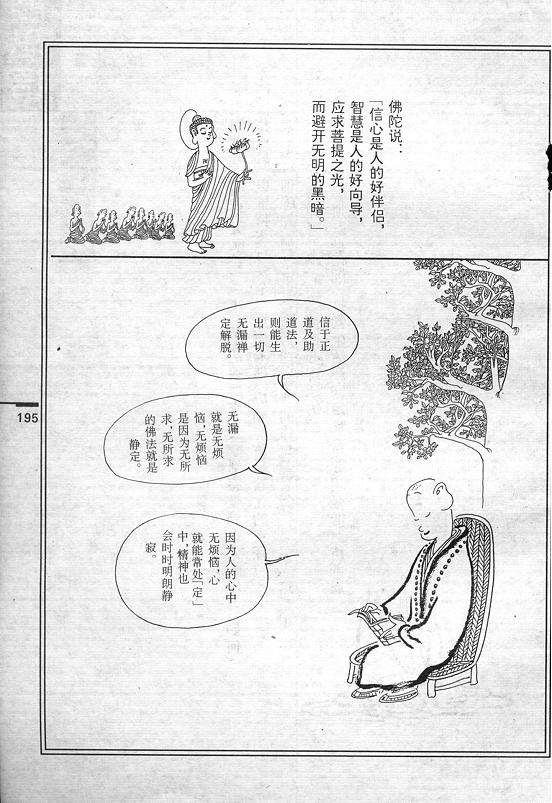 佛陀说：
「信心是人的好伴侣，
智慧是人的好向导，
应求菩提之光，
而避开无明的黑暗。」
信于正
道及助
道法，
则能生
出一切
无漏禅
定解脱。
无漏
就是无烦
恼，无烦恼
是因为无所
求，无所求
的佛法就是
静定。
因为人的心中
无烦恼，心
就能常处「定」
中，精神也
会时时明朗静
寂。
195